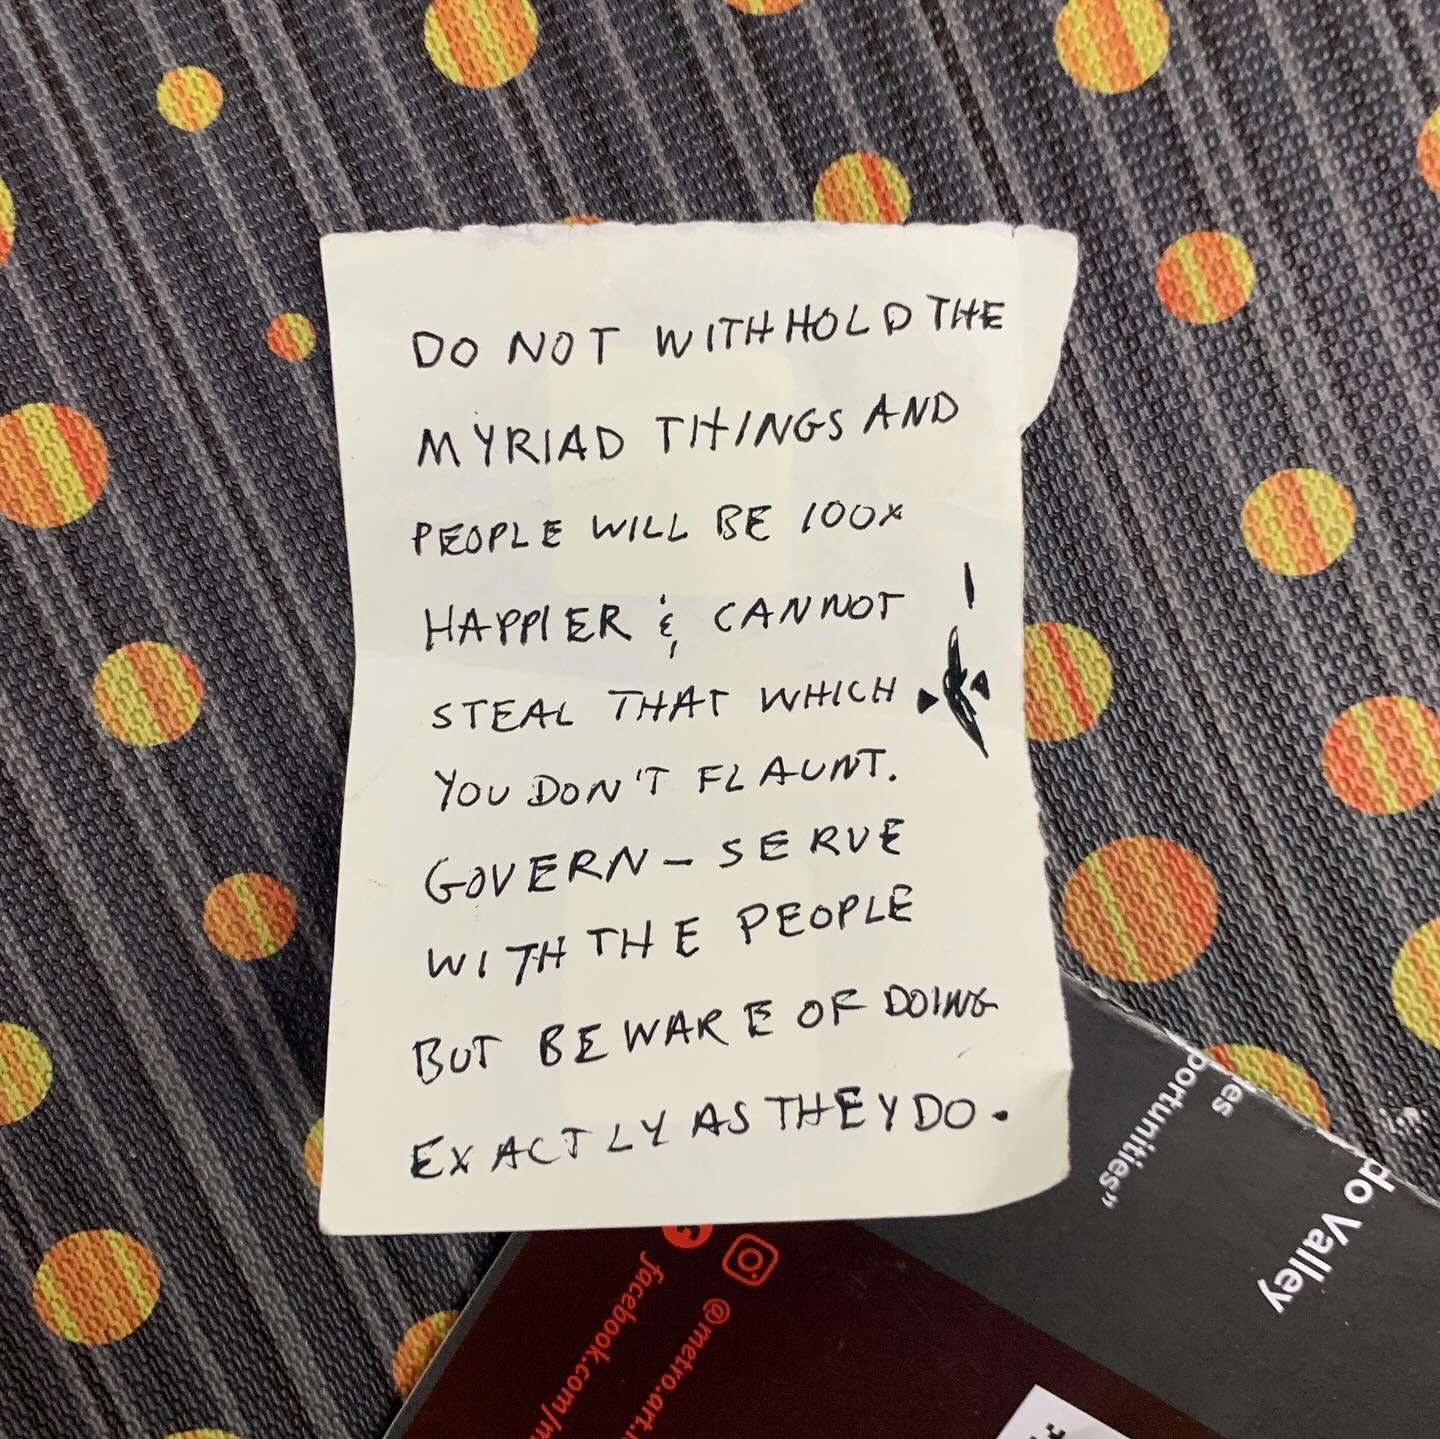 DO NOT WITHHOLD THE
MYRIAD THINGS AND
PEOPLE WILL BE 100X
HAPPIER & CANNOT
STEAL THAT WHICH
YOU DON'T FLAUNT.
GOVERN – SERVE
WITH THE PEOPLE
BUT BEWARE OF DOING
EXACTLY AS THEY DO.
ies
portunities"
do Valley
@metro.art.
facebook.com/m